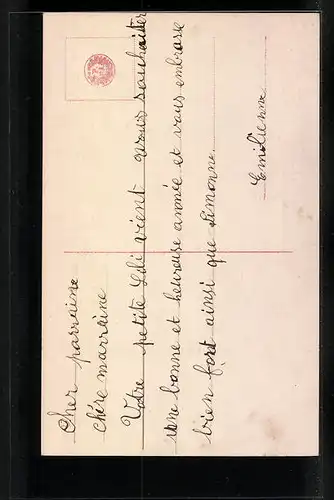 Cher parraine
chère marraine
Votre petite Lili vient vous souhaiter
une bonne et heureuse année et vous embrasse
bien fort ainsi que Simonne.
Emilienne